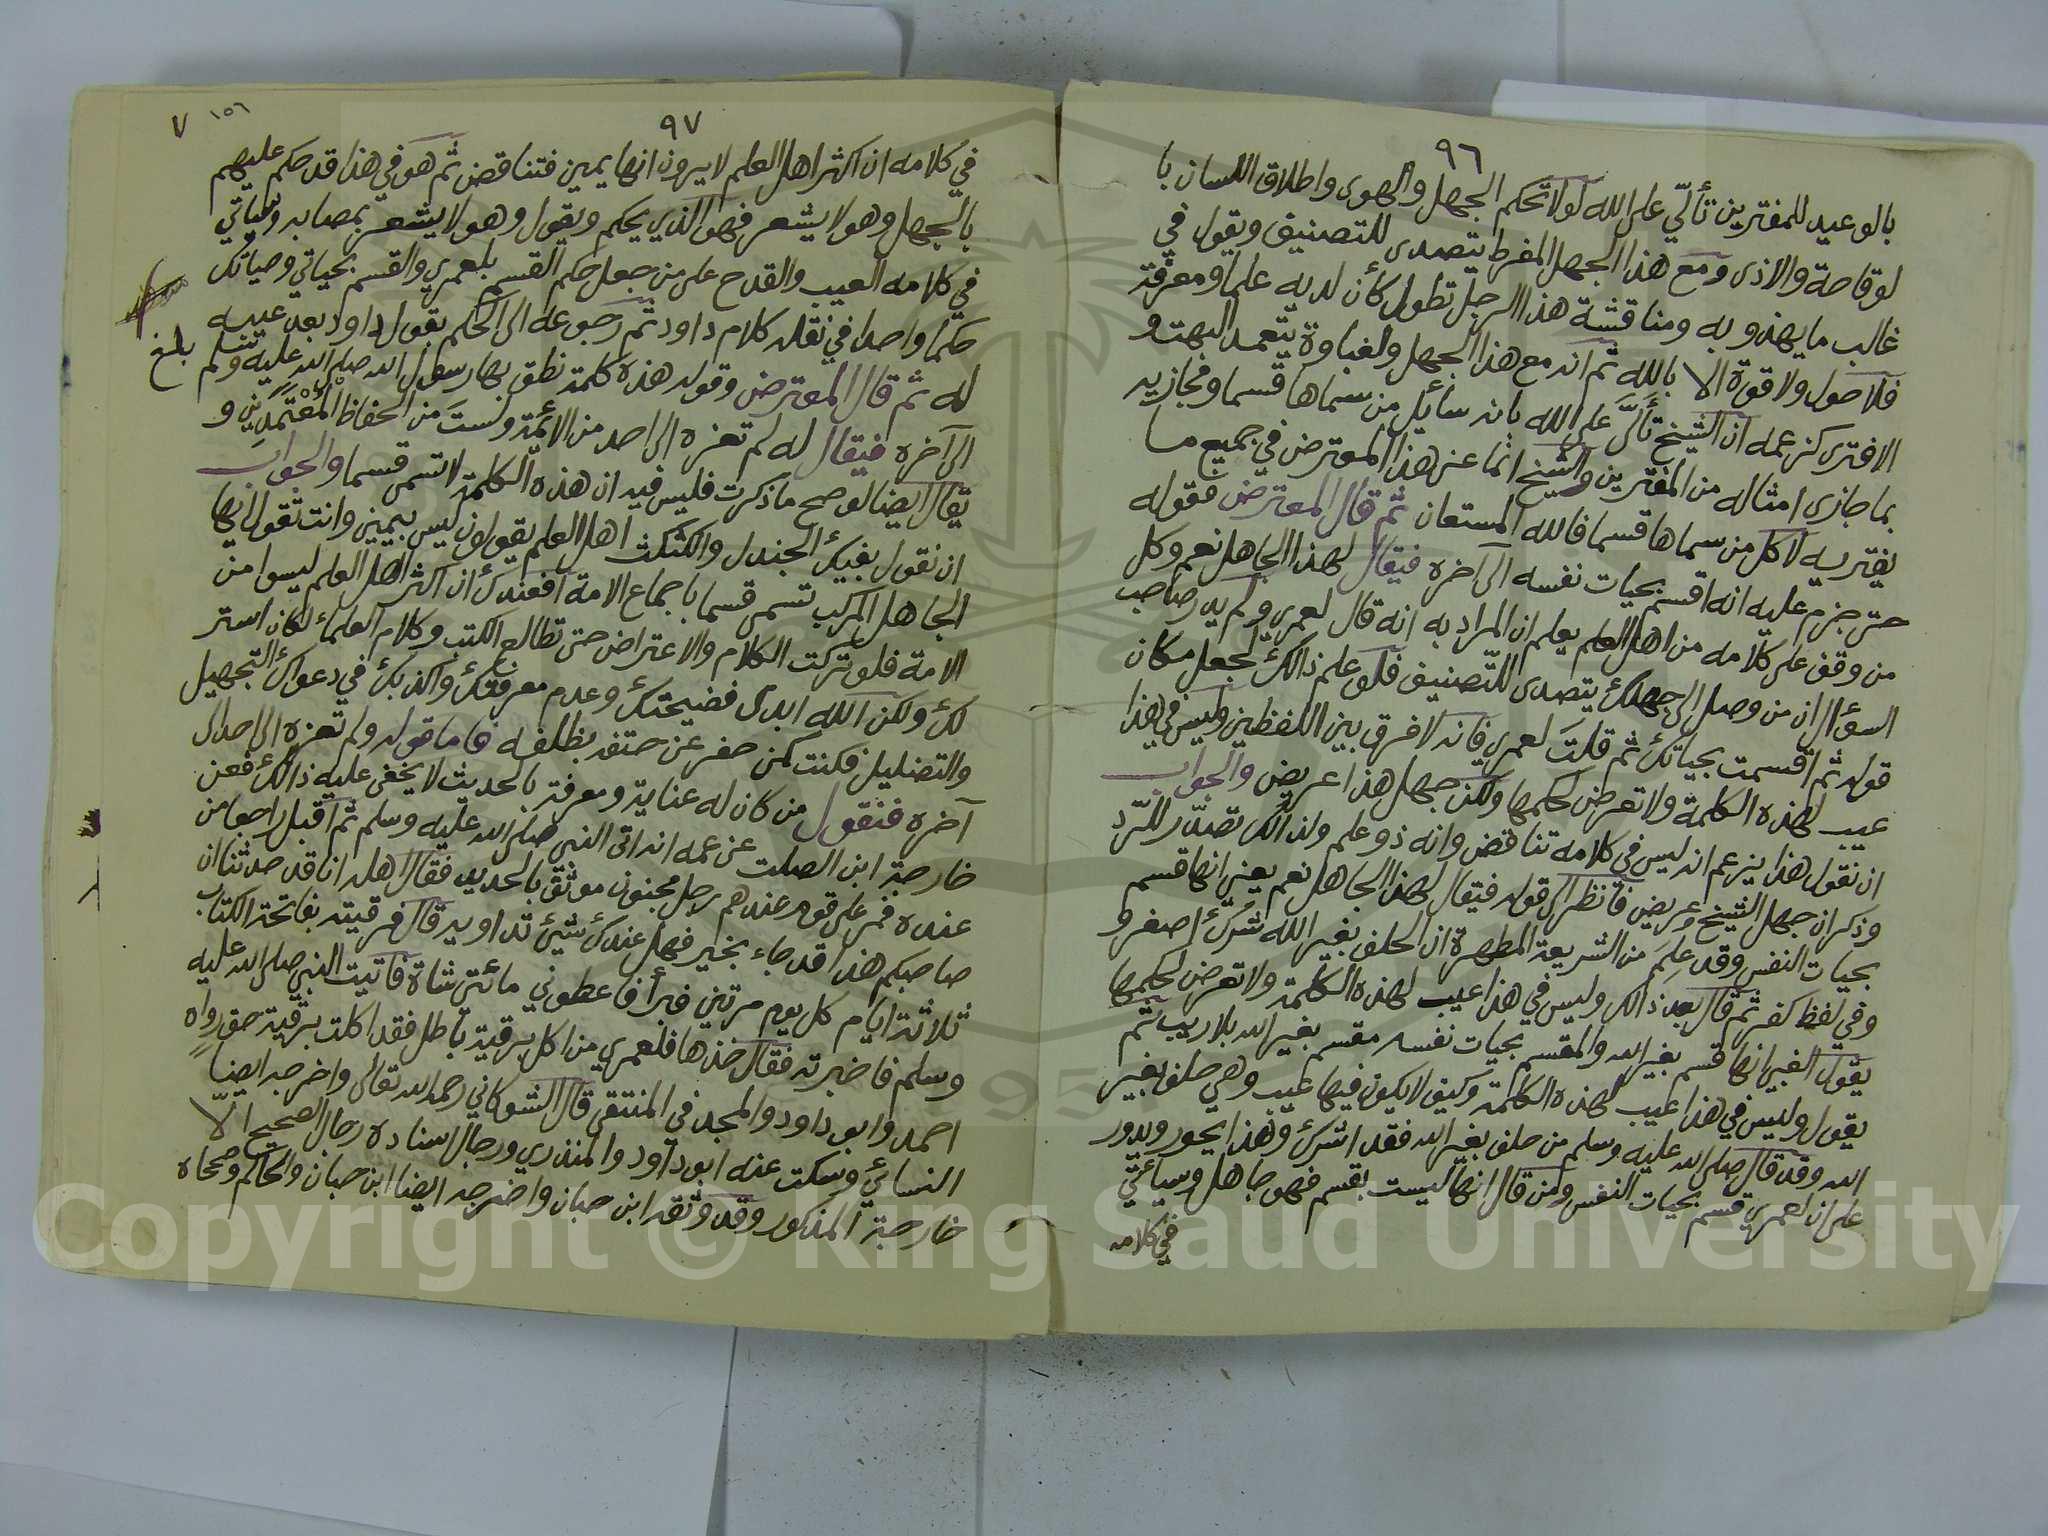 ٩٦
بالوعيد للمفترين تألّي على الله لولا تحكم الجهل والهوى واطلاق اللسان با
لوقاحة والاذى ومع هذا الجهل المفرط يتصدى للتصنيف ويقول في
غالب ما يهذو به ومناقشة هذا الرجل تطول كأن لديه علما ومعرفة
فلا حول ولا قوة الا بالله ثم انه مع هذا الجهل والغباوة يتعمد البهت و
الافترى كزعمه ان الشيخ تألّى على الله بانه سائل من سماها قسما ومجازيه
بما جازى امثاله من المفترين والشيخ انما عنى هذا المعترض في جميع ما
يفتريه لا كل من سماها قسما فالله المستعان ثم قال المعترض فقوله
حتى جزم عليه انه اقسم بحيات نفسه الى آخره فيقال لهذا الجاهل نعم وكل
من وقف على كلامه من اهل العلم يعلم ان المراد به انه قال لعمري ولم يدر صاحب
السؤال ان من وصل الى جهلك يتصدى للتصنيف فلو علم ذالك لجعل مكان
قوله ثم اقسمت بحياتك ثم قلت لعمري فانه لا فرق بين اللفظين وليس في هذا
عيب لهذه الكلمة ولا تعرض لحكمها ولكن جهل هذا عريض والجواب
ان نقول هذا يزعم انه ليس في كلامه تناقض وانه ذو علم ولذالك تصدّر للرّد
وذكر ان جهل الشيخ عريض فانظر الى قوله فيقال لهذا الجاهل نعم يعني انها قسم
بحيات النفس وقد علم من الشريعة المطهرة ان الحلف بغير الله شرك اصغر و
وفي لفظ كفر ثم قال بعد ذالك وليس في هذا عيب لهذه الكلمة ولا تعرض لحكمها
يقول الغير انها قسم بغير الله والمقسم بحيات نفسه مقسم بغير الله بلا ريب ثم
يقول وليس في هذا عيب لهذه الكلمة وكيف لا يكون فيها عيب وهي حلف بغير
الله وقد قال صلى الله عليه وسلم من حلف بغير الله فقد اشرك وهذا يحور ويدور
على ان لعمري قسم بحيات النفس ومن قال انها ليست بقسم فهو جاهل وسيأتي
في كلامه
٩٧
١٥٦
٧
في كلامه ان اكثر اهل العلم لا يرون انها يمين فتناقض ثم هو في هذا قد حكم عليهم
بالجهل وهو لا يشعر فهو الذي يحكم ويقول وهو لا يشعر بمصابه وسيأتي
في كلامه العيب والقدح على من جعل حكم القسم بلعمري والقسم بحياتي وحياتك
حكما واحدا في نقله كلام داود ثم رجوعه الى الحكم بقول داود بعد عيبه
له ثم قال المعترض وقوله هذه كلمة نطق بها رسول الله صلى الله عليه وسلم
بلغ
الى آخره فيقال له لم تعزه الى احد من الائمة ولست من الحفاظ المعتمدين و
يقال ايضا لو صح ما ذكرت فليس فيه ان هذه الكلمة لا تسمى قسما والجواب
ان نقول بفيك الجندل والكثكث اهل العلم يقولون ليس بيمين وانت تقول انها
الجاهل المركب تسمى قسما باجماع الامة افعندك ان اكثر اهل العلم ليسوا من
الامة فلو تركت الكلام والاعتراض حتى تطالع الكتب وكلام العلماء لكان استر
لك ولكن الله ابدى فضيحتك وعدم معرفتك واكذبك في دعواك التجهيل
والتضليل فكنت كمن حفر عن حتفه بظلفه فاما قوله ولم تعزه الى احد الى
آخره فنقول من كان له عناية ومعرفة بالحديث لا يخفى عليه ذالك فعن
خارجة ابن الصلت عن عمه انه اتى النبي صلى الله عليه وسلم ثم اقبل راجعا من
عنده فمر على قوم عندهم رجل مجنون موثق بالحديد فقال اهله انا قد حدثنا ان
صاحبكم هذا قد جاء بخير فهل عندك شيئ تداويه قال فرقيته بفاتحة الكتاب
ثلاثة ايام كل يوم مرتين فبرأ فاعطوني مائتي شاة فاتيت النبي صلى الله عليه
وسلم فاخبرته فقال خذها فلعمري من اكل برقية باطل فقد اكلت برقية حق رواه
احمد وابو داود والمجد في المنتقى قال الشوكاني رحمه الله تعالى واخرجه ايضا
النسائي وسكت عنه ابو داود والمنذري ورجال اسناده رجال الصحيح الّا
خارجة المذكور وقد وثقه ابن حبان واخرجه ايضا ابن حبان والحاكم وصححاه
Copyright © King Saud University